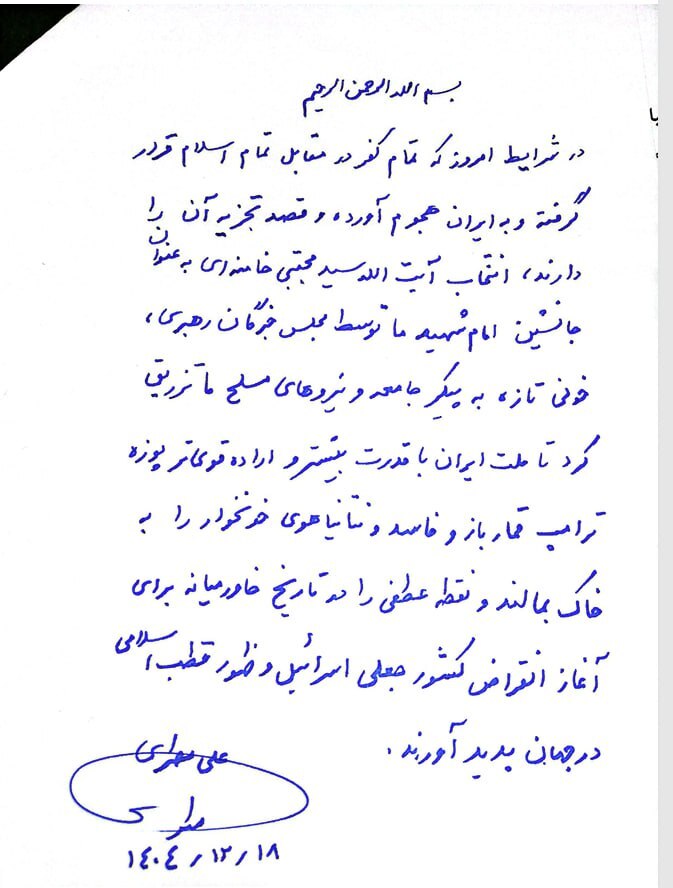 بسم الله الرحمن الرحیم
در شرایط امروز که تمام کفر در مقابل تمام اسلام قرار
گرفته و به ایران هجوم آورده و قصد تجزیه آن را
دارند، انتخاب آیت الله سید مجتبی خامنه‌ای به عنوان
جانشین امام شهید ما توسط مجلس خبرگان رهبری،
خونی تازه به پیکر جامعه و نیروهای مسلح ما تزریق
کرد تا ملت ایران با قدرت بیشتر و اراده قوی‌تر پوزه
ترامپ قمارباز و فاسد و نتانیاهوی خونخوار را به
خاک بمالند و نقطه عطفی را در تاریخ خاورمیانه برای
آغاز انقراض کشور جعلی اسرائیل و ظهور قطب اسلامی
در جهان پدید آورند.
علی
۱۴۰۴/۱۲/۱۸